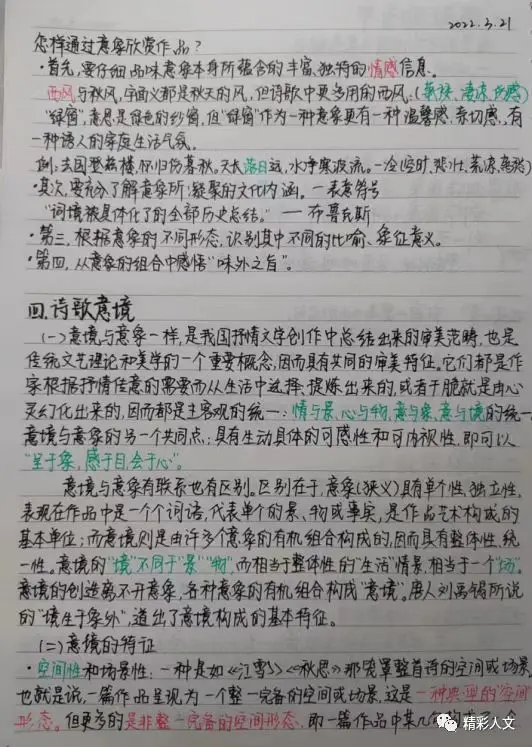 2022.3.21
怎样通过意象欣赏作品？
·首先，要仔细品味意象本身所蕴含的丰富、独特的情感信息。
西风与秋风，字面义都是秋天的风，但诗歌中更多用的西风。(萧瑟、凄凉、伤感)
"绿窗"，意思是绿色的纱窗，但"绿窗"作为一种意象更有一种温馨感、亲切感、有
一种诱人的家庭生活气氛。
例：去国登兹楼，怀归伤暮秋。天长落日远，水净寒波流。一冷(空时、悲壮、荒凉、离愁)
·其次，要充分了解意象所凝聚的文化内涵。—表意符号
"词境被具体化了的全部历史总结。" — 布鲁瓦斯
·第三，根据意象的不同形态，识别其中不同的比喻、象征意义。
·第四，从意象的组合中感悟"味外之旨"。
四.诗歌意境
(一)意境与意象一样，是我国抒情文学创作中总结出来的审美范畴，也是
传统文艺理论和美学的一个重要概念，因而具有共同的审美特征。它们都是作
家根据抒情任意的需要而从生活中选择、提炼出来的，或者干脆就是由心
灵幻化出来的，因而都是主客观的统一：情与景、心与物、意与象、意与境的统一
意境与意象的另一个共同点：具有生动具体的可感性和可内视性，即可以
"呈于象，感于目，会于心"。
意境与意象有联系也有区别。区别在于，意象(狭义)具有单个性、独立性，
表现在作品中是一个个词语，代表单个的景、物或事实，是作品艺术构成的
基本单位；而意境则是由许多个意象的有机组合构成的，因而具有整体性、统
一性。意境的"境"不同于"景""物"，而相当于整体性的"生活"情景，相当于一个"场"。
意境的创造离不开意象，各种意象的有机组合构成"意境"。唐人刘禹锡所说
的"境生于象外"，道出了意境构成的基本特征。
(二)意境的特征
·空间性和场景性：一种是如《江雪》《秋思》那笼罩整首诗的空间或场景，
也就是说，一篇作品呈现为一个整一完备的空间或场景，这是一种典型的"空间
形态。但更多的是非整一完备的空间形态，取一篇作品中某几
精彩人文